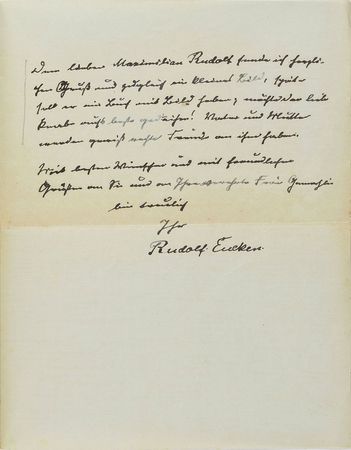 Dem lieben Maximilian Rudolf sende ich herzli-
chen Gruß und zugleich ein kleines Bild, spät
soll er ein Buch mit Bild haben; möchte der liebe
Knabe aufs beste gedeihen! Vater und Mutter
werden gewiß rechte Freude an ihm haben.
Mit besten Wünschen und mit freundlichen
Grüßen an Sie und an Ihre verehrte Frau Gemahlin
bin treulich
Ihr
Rudolf Eucken.